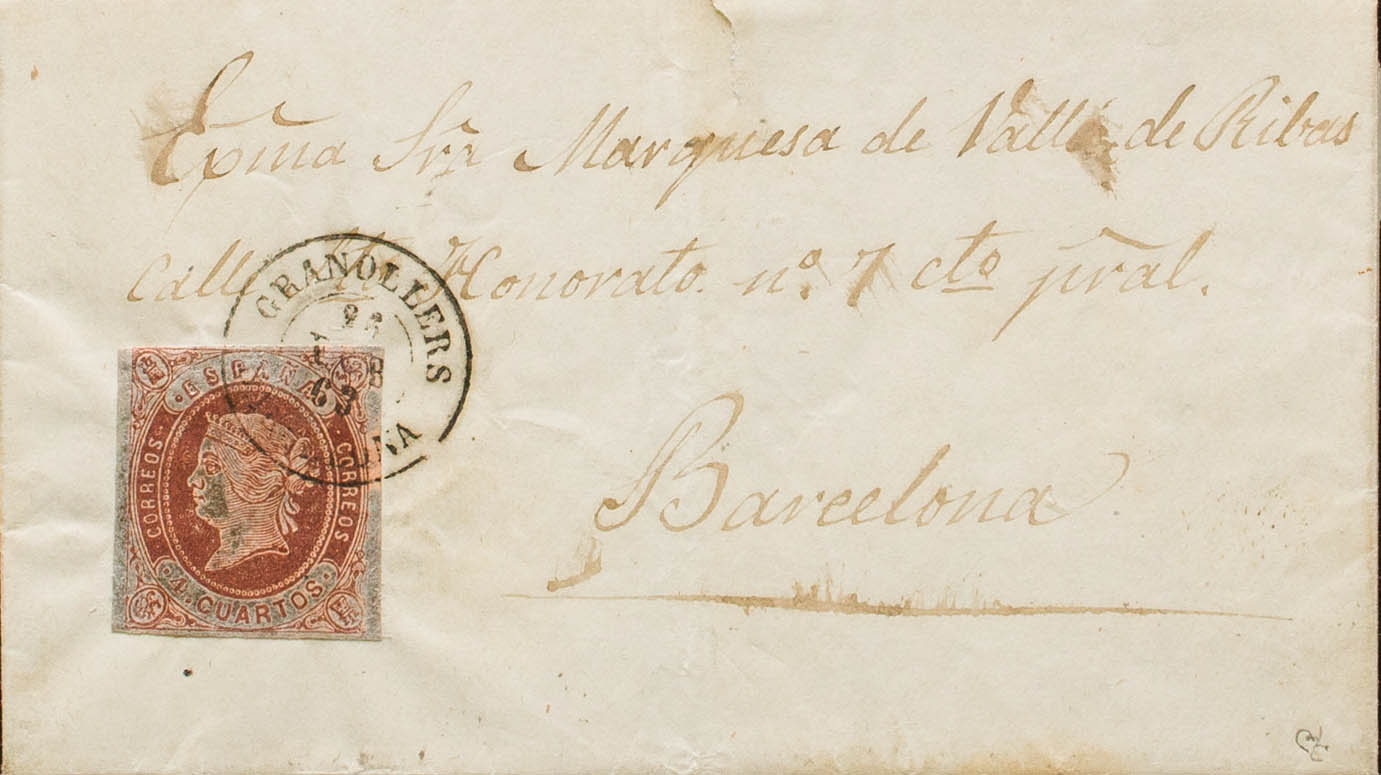 Exma Sra Marquesa de Valle de Ribas
Calle Sto Honorato. nº. 7 cto pral.
Barcelona
GRANOLLERS
63
ESPAÑA
CORREOS
CORREOS
4. CUARTOS.